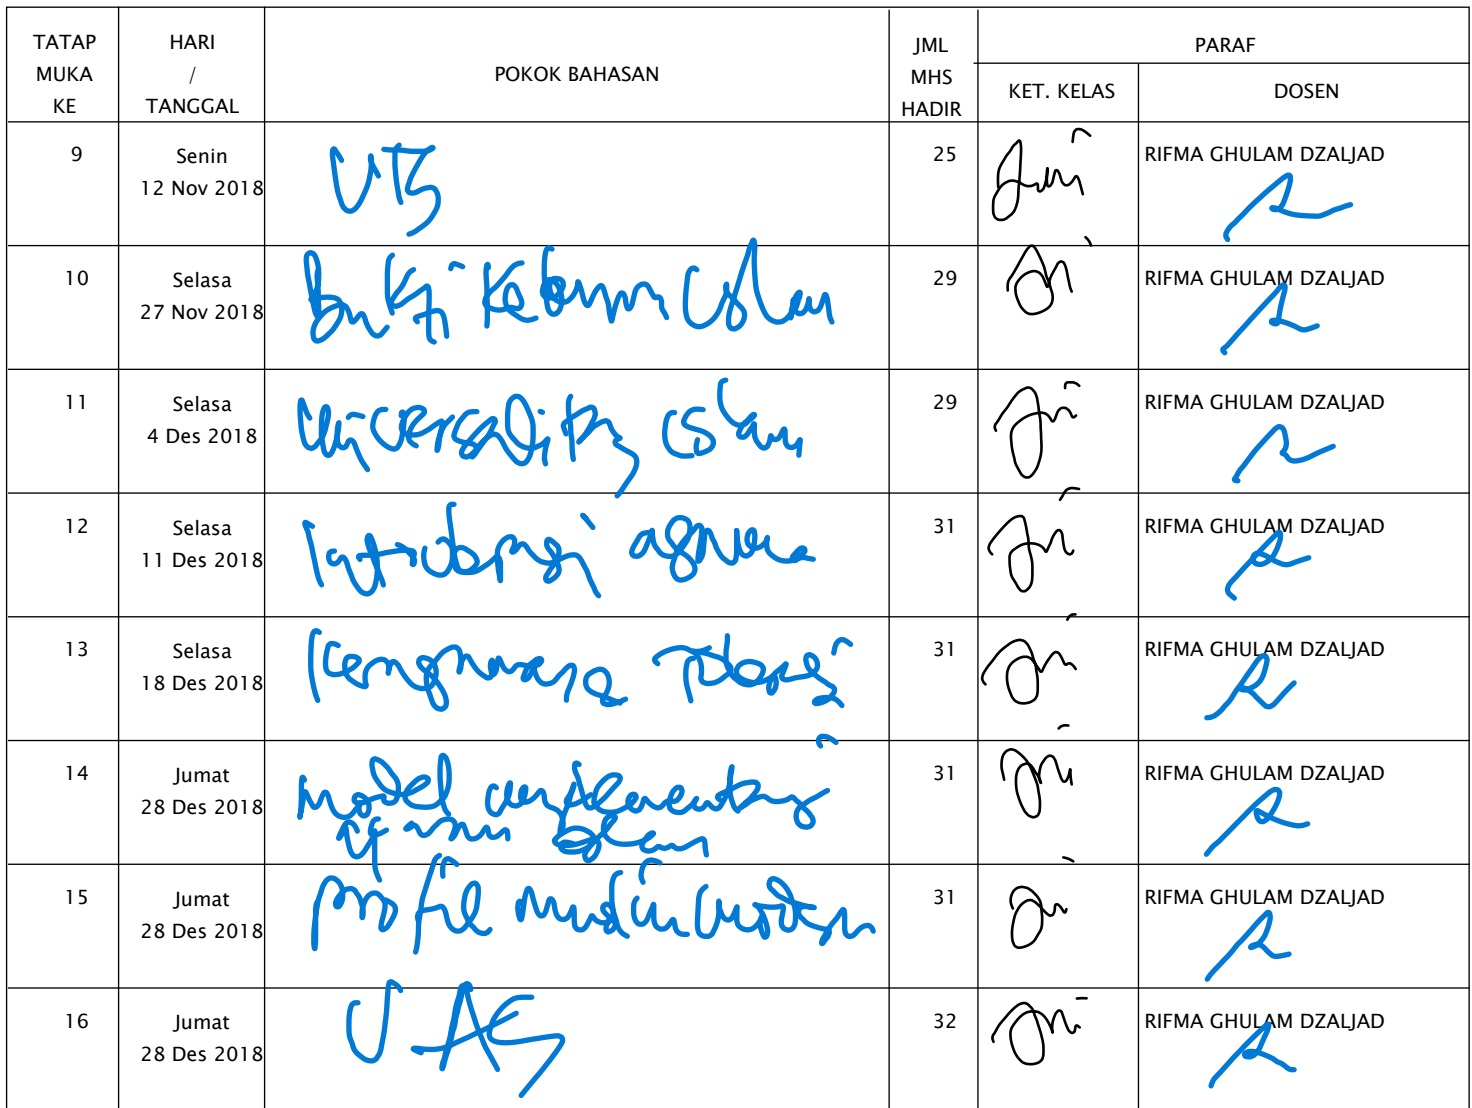 TATAP MUKA KE HARI / TANGGAL POKOK BAHASAN JML MHS HADIR PARAF
KET. KELAS DOSEN
9 Senin 12 Nov 2018 UTS 25 RIFMA GHULAM DZALJAD
10 Selasa 27 Nov 2018 Bukti Islam 29 RIFMA GHULAM DZALJAD
11 Selasa 4 Des 2018 Islam 29 RIFMA GHULAM DZALJAD
12 Selasa 11 Des 2018 agama 31 RIFMA GHULAM DZALJAD
13 Selasa 18 Des 2018 31 RIFMA GHULAM DZALJAD
14 Jumat 28 Des 2018 model 31 RIFMA GHULAM DZALJAD
15 Jumat 28 Des 2018 profil 31 RIFMA GHULAM DZALJAD
16 Jumat 28 Des 2018 UAS 32 RIFMA GHULAM DZALJAD